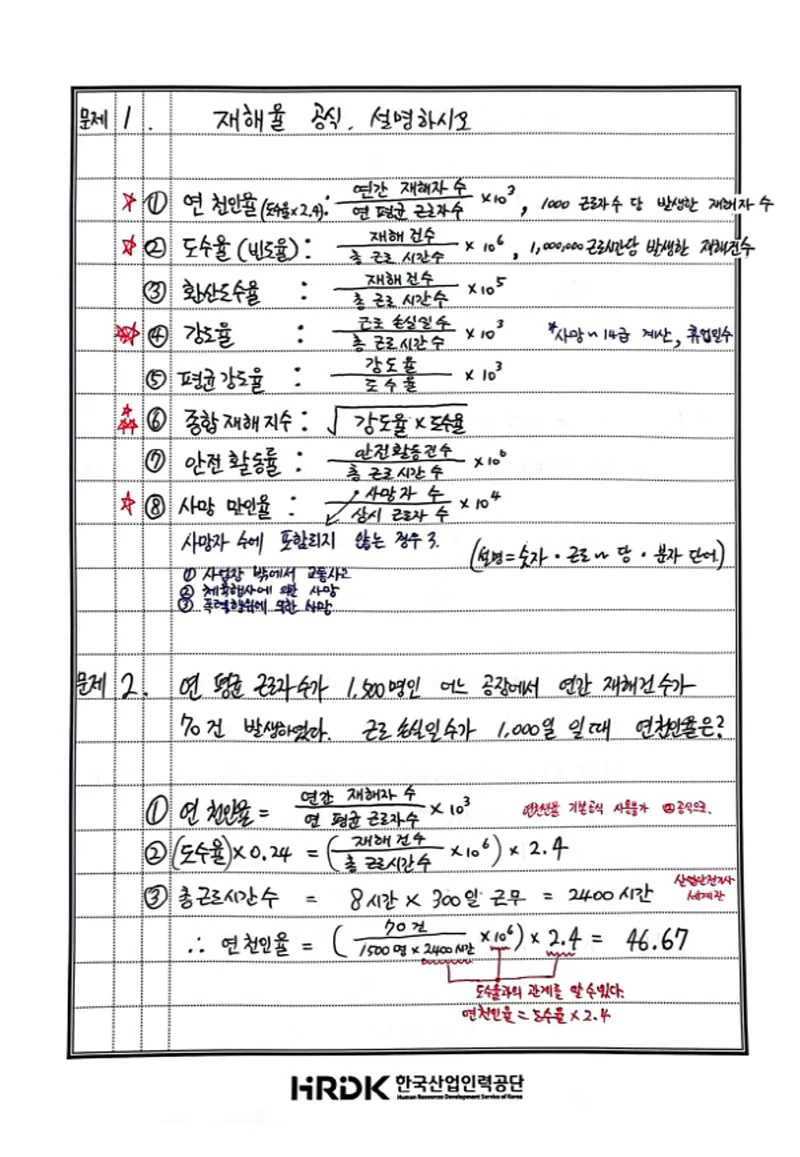 문제 1. 재해율 공식. 설명하시오
☆ ① 연 천인율 (도수율×2.4): 연간 재해자 수 / 연 평균 근로자수 ×10³, 1000 근로자수 당 발생한 재해자 수
☆ ② 도수율 (빈도율): 재해 건수 / 총 근로 시간수 ×10⁶, 1,000,000 근로시간당 발생한 재해건수
③ 환산도수율 : 재해 건수 / 총 근로 시간수 ×10⁵
☆☆☆ ④ 강도율 : 근로 손실일수 / 총 근로 시간수 ×10³ *사망~14급 계산, 휴업일수
⑤ 평균강도율 : 강도율 / 도수율 ×10³
☆☆☆ ⑥ 종합재해지수 : √강도율 × 도수율
⑦ 안전활동률 : 안전활동건수 / 총 근로시간수 ×10⁶
☆ ⑧ 사망 만인율 : 사망자 수 / 상시 근로자 수 ×10⁴
사망자 수에 포함되지 않는 경우 3.
(설명=숫자·근로~당·분자 단어)
① 사업장 밖에서 교통사고
② 체육행사에 의한 사망
③ 폭력행위에 의한 사망
문제 2. 연 평균 근로자수가 1,500명인 어느 공장에서 연간 재해건수가
70건 발생하였다. 근로 손실일수가 1,000일 일때 연천인율은?
① 연 천인율 = 연간 재해자 수 / 연 평균 근로자수 ×10³ 연천인율 기본공식 사용불가 ②공식으로.
② (도수율)×0.24 = (재해건수 / 총 근로시간수 ×10⁶) × 2.4
③ 총근로시간수 = 8시간 × 300일 근무 = 2400시간
∴ 연천인율 = (70건 / 1500명×2400시간 ×10⁶) × 2.4 = 46.67
도수율과의 관계를 알 수 있다.
연천인율 = 도수율×2.4
HRDK 한국산업인력공단
Human Resources Development Service of Korea